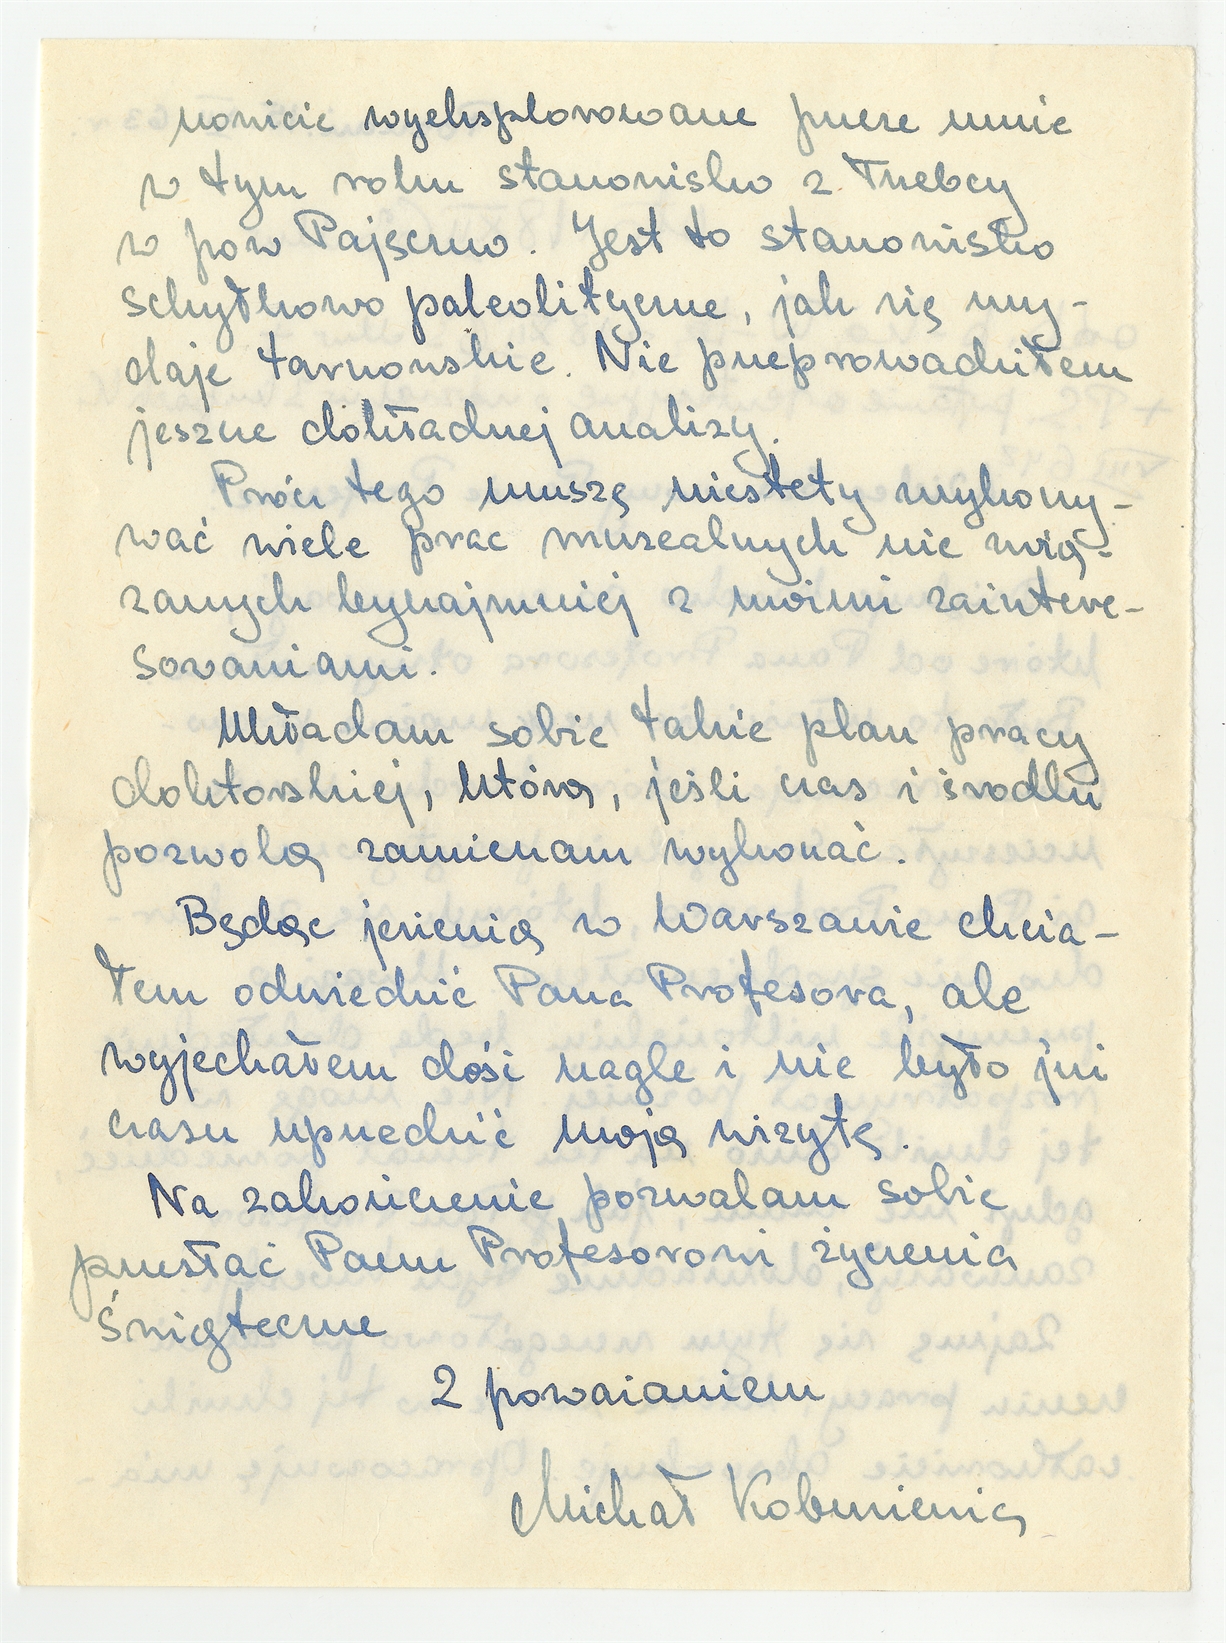 nowicie wyeksplorowane przeze mnie
w tym roku stanowisko z Trzebcy
w pow Pajęczno. Jest to stanowisko
schyłkowo paleolityczne, jak się wy-
daje tarnowskie. Nie przeprowadziłem
jeszcze dokładnej analizy.
Prócz tego muszę niestety wykony-
wać wiele prac muzealnych nie zwią-
zanych bynajmniej z moimi zaintere-
sowaniami.
Układam sobie takie plan pracy
doktorskiej, którą, jeśli czas i środki
pozwolą zamierzam wykonać.
Będąc jesienią w Warszawie chcia-
łem odwiedzić Pana Profesora, ale
wyjechałem dość nagle i nie było już
czasu uprzedzić moją wizytę.
Na zakończenie pozwalam sobie
przesłać Panu Profesorowi życzenia
świąteczne
Z poważaniem
Michał